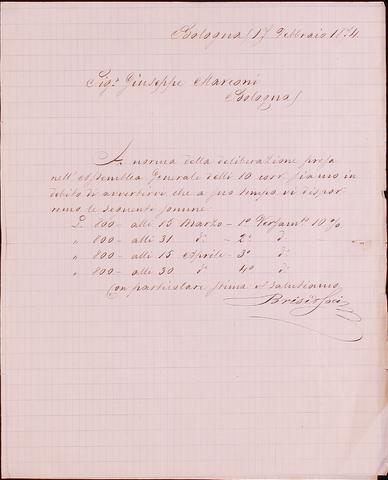 Bologna 17 Febbraio 1874.
Sigr. Giuseppe Marconi
Bologna
A norma della deliberazione presa
nell'Assemblea Generale delli 10 corr. siamo in
debito di avvertirvi che a suo tempo vi dispor
remo le seguenti somme.
L. 800 – alli 15 Marzo – 1º Versamto. 10 %
" 800 – alli 31 dº – 2º dº
" 800 – alli 15 Aprile – 3º dº
" 800 – alli 30 dº 4º dº
Con particolare stima vi salutiamo